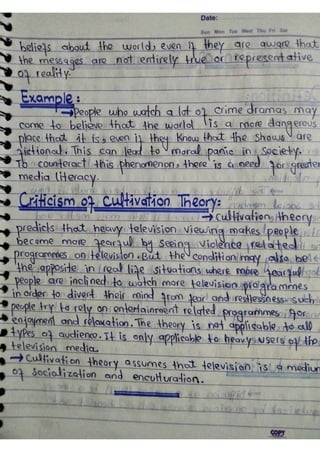 Date:
Sun Mon Tue Wed Thu Fri Sat
beliefs about the world, even if they are aware that
the messages are not entirely true or representative
of reality.
Example:
→ People who watch a lot of crime dramas may
come to believe that the world is a more dangerous
place that it is, even if they know that the shows are
fictional. This can lead to moral panic in society.
To counteract this phenomenon, there is a need for greater
media literacy.
Criticism of Cultivation Theory:
→ Cultivation theory
predicts that heavy television viewing makes people
become more fearful by seeing violence related
programmes on television. But the condition may also be
the opposite in real life situations where more fearful
people are inclined to watch more television programmes
in order to divert their mind from fear and restlessness such
people try to rely on entertainment related programmes for
enjoyment and relaxation. The theory is not applicable to all
types of audience. It is only applicable to heavy users of the
television media.
→ Cultivation theory assumes that television is a medium
of socialization and enculturation.
COPY